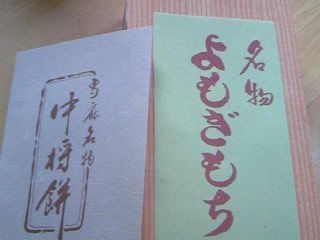 名物
よもぎもち
当麻名物
中将餅